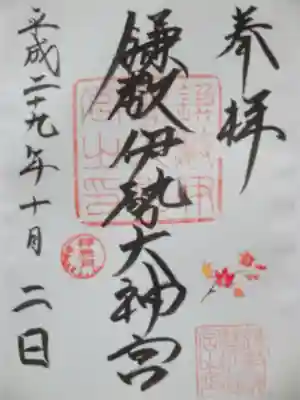 奉拝
鎌數伊勢大神宮
平成二十九年十月二日